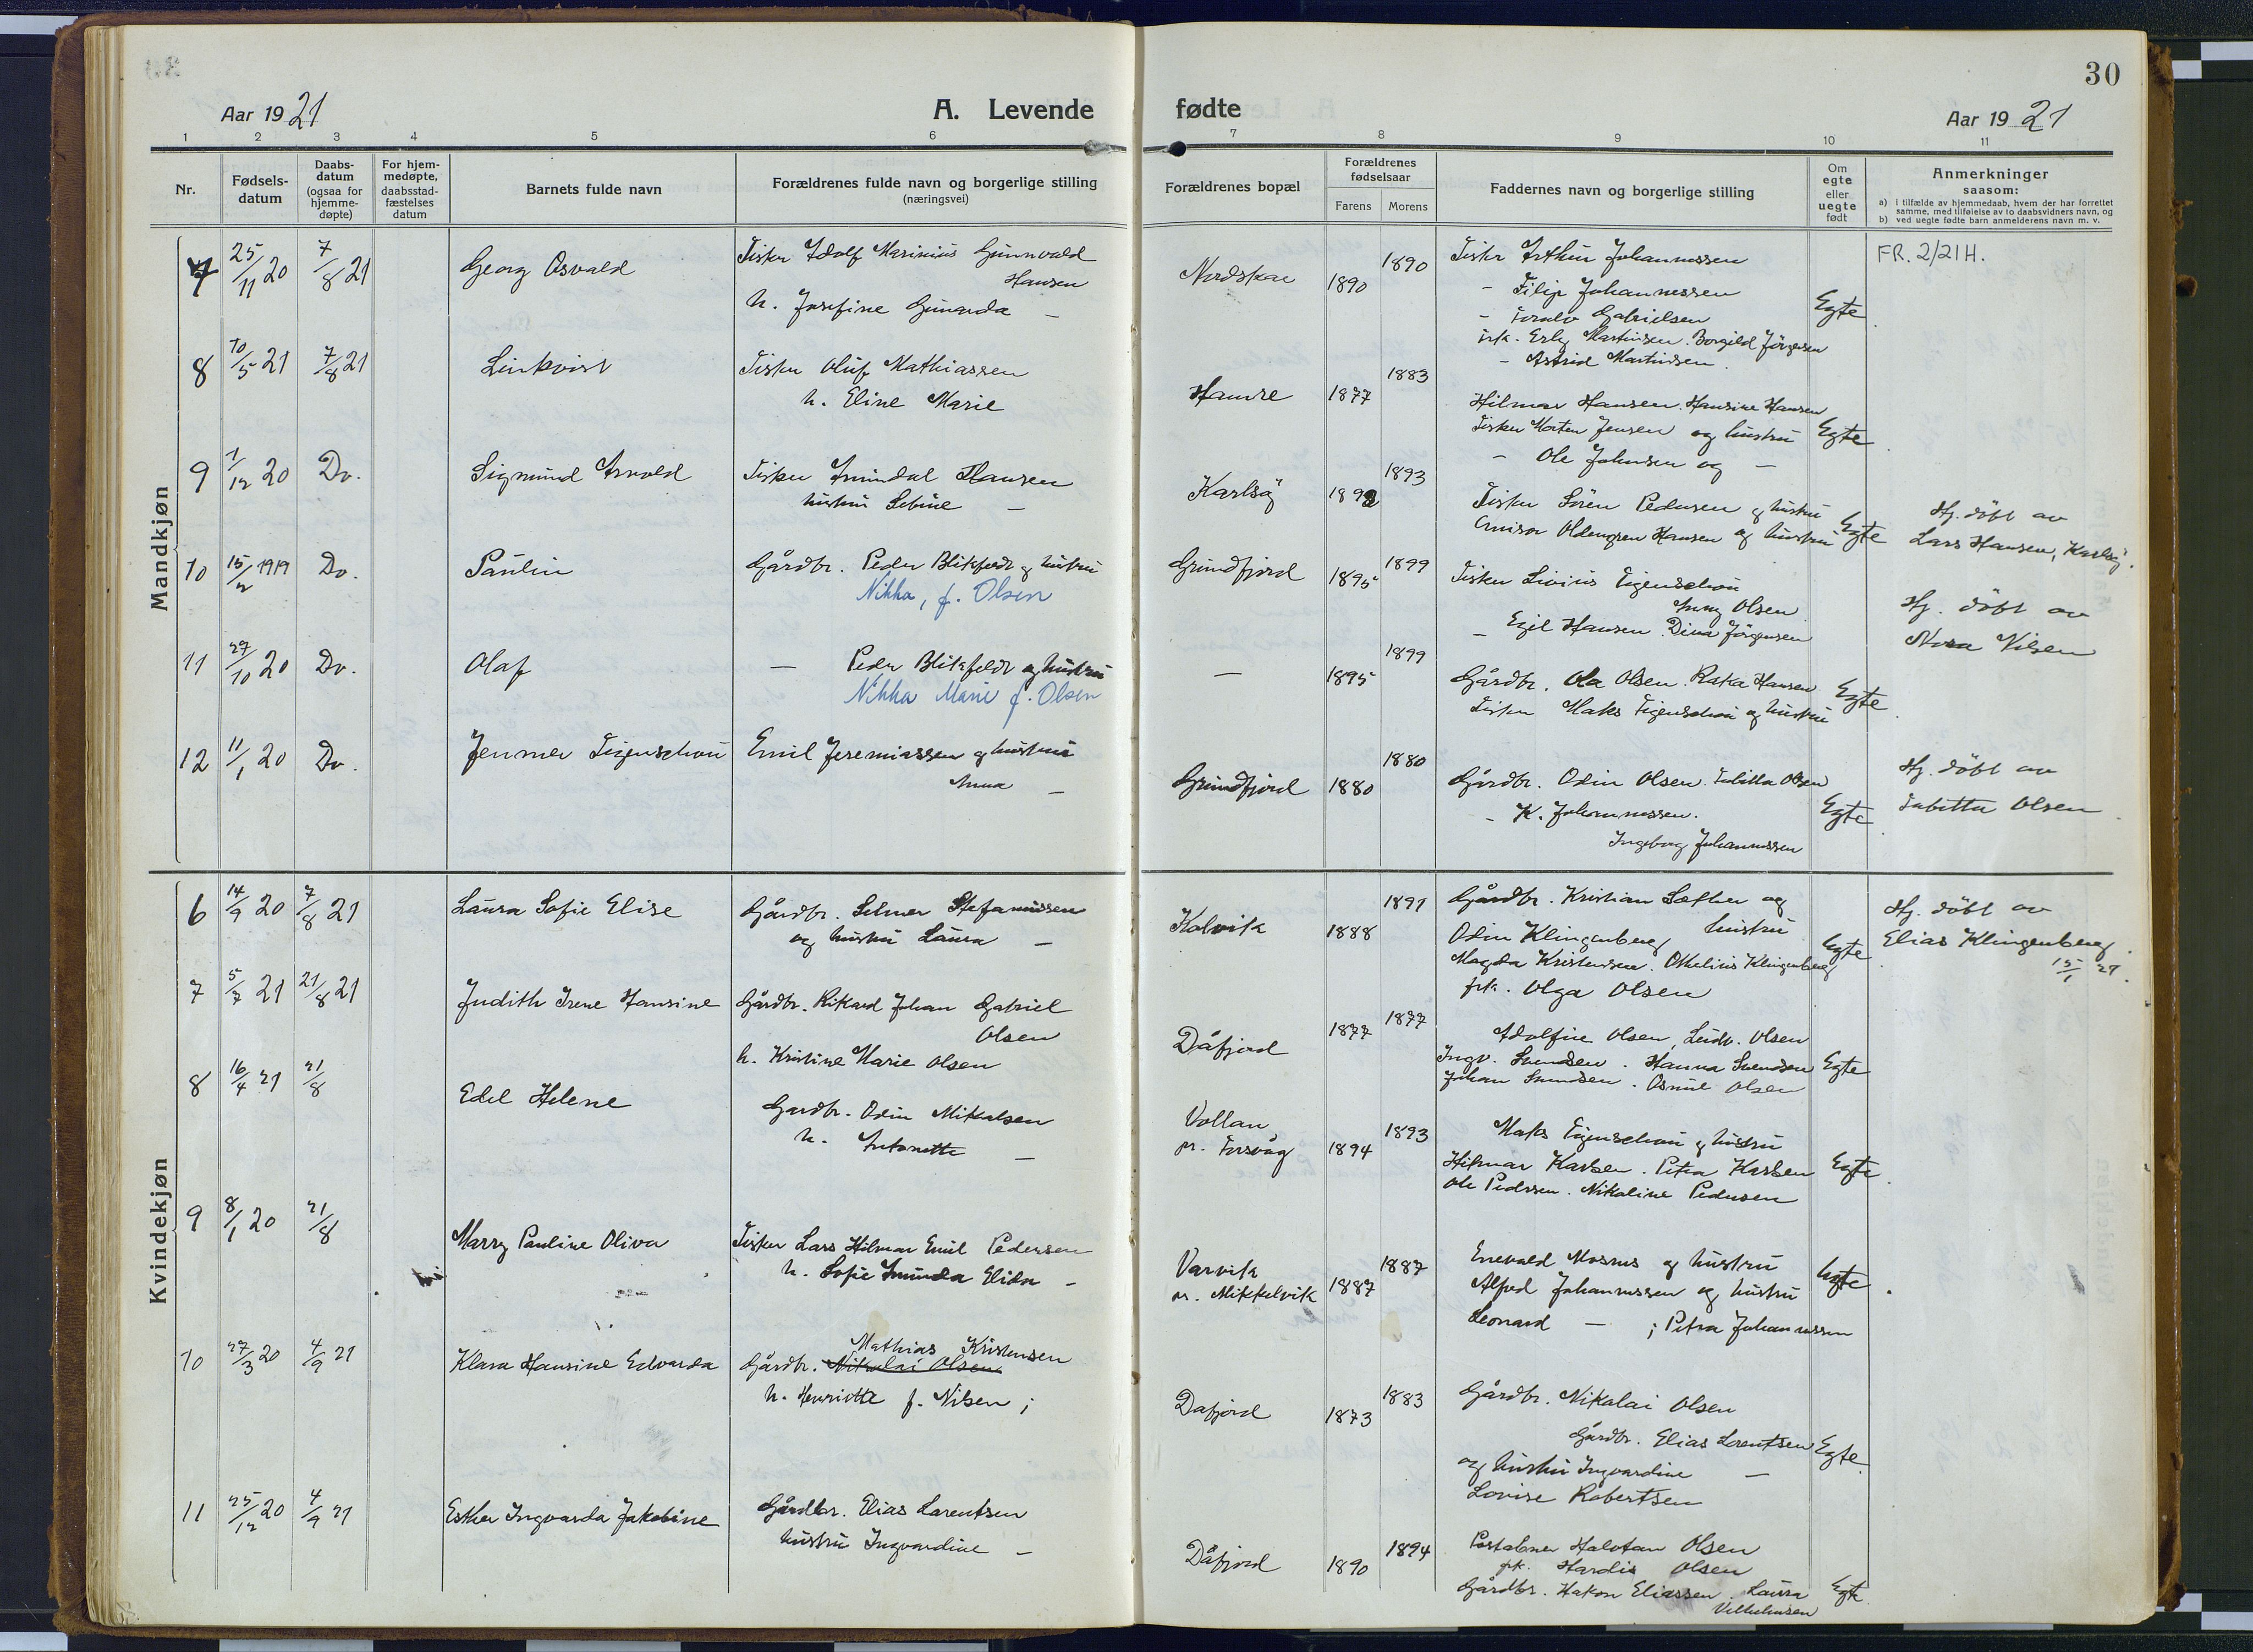 30
Aar 1921
A. Levende
fødte
Aar 1921
1 2 3 4 5 6 7 8 9 10 11
Nr.
Fødsels-
datum
Daabs-
datum
(ogsaa for
hjemme-
døpte)
For hjem-
medøpte,
daabsstad-
fæstelses
datum
Barnets fulde navn
Forældrenes fulde navn og borgerlige stilling
(næringsvei)
Forældrenes bopæl
Forældrenes
fødselsaar
Farens
Morens
Faddernes navn og borgerlige stilling
Om
egte
eller
uegte
født
Anmerkninger
saasom:
a) i tilfælde av hjemmedaab, hvem der har forrettet
samme, med tilføielse av to daabsvidners navn, og
b) ved uegte fødte barn anmelderens navn m. v.
Mandkjøn
7 25/11 20 7/8 21 Georg Osvald
Fisker Adolf Marinius Gunnvald
Hansen
h. Josefine Gunarda —
1890 1890
Fisker Arthur Johannessen
- Filip Johannessen
- Gabrielsen
frk. Martinsen. Borgild Jörgensen
- Astrid Martinsen.
Egte
FR. 2/21 H.
8 10/5 21 7/8 21 Linkvist
Fisker Oluf Mathiassen
h. Eline Marie
Hamre 1877 1883
Hilmar Hansen. Hansine Hansen
Fisker Morten Jensen og hustru
- Ole Johnsen og —
Egte
9 1/12 20 Do. Sigmund Arnold
Fisker Amandal Hansen
hustru Sebine —
Karlsö 1892 1893
Fisker Sören Pedersen og hustru
Oldengren Hansen og hustru
Egte
Hj. döbt av
Lars Hansen, Karlsö.
10 15/2 1919 Do. Paulin
Gårdbr. Peder Blikfeldt og hustru
Nikka, f. Olsen
Grundfjord 1895 1899
Fisker Livius Figenschou
Olsen
- Egil Hansen. Dina Jörgensen
Hj. döbt av
Nora Nilsen
11 27/10 20 Do. Olaf
— Peder Blikfeldt og hustru
Nikka Marie f. Olsen
— 1895 1899
Gårdbr. Ola Olsen. Hansen
Fisker Maks Figenschou og hustru
Egte
12 11/1 20 Do. Jenmer Figenschou
Emil Jeremiassen og hustru
Anna —
Grundfjord 1880 1880
Gårdbr. Odin Olsen. Tabitta Olsen
- K. Johannessen.
Ingeborg Johannessen
Egte
Hj. döbt av
Tabitta Olsen
Kvindekjøn
6 14/9 20 7/8 21 Laura Sofie Elise
Gårdbr. Selmer Stefanussen
og hustru Laura —
Kolvik 1888 1891
Gårdbr. Kristian Sæther og
hustru
Odin Klingenberg
Magda Kristensen. Othelius Klingenberg
frk. Olga Olsen
Egte
Hj. döbt av
Elias Klingenberg
15/1 21.
7 5/7 21 21/8 21 Judith Irene Hansine
Gårdbr. Rikard Johan Gabriel
Olsen
h. Kristine Marie Olsen
Dåfjord 1877 1877
Adolfine Olsen, Ludv. Olsen
Ingv. Svendsen. Hanna Svendsen
Johan Svendsen. Olsen
Egte
8 16/4 21 21/8 Edel Helene
Gardbr. Odin Mikalsen
h. Antonette —
Vollan
pr. 1894 1893
Maks Figenschou og hustru
Hilmar Karlsen. Petra Karlsen
Ole Pedersen. Nikoline Pedersen
Egte
9 8/1 20 21/8 Marry Pauline Oliva
Fisker Lars Hilmar Emil Pedersen
h. Sofie Amunda Elida -
Varvik
pr. Mikkelvik 1887 1887
Enevald Mosnes og hustru
Alfred Johannessen og hustru
Leonard — ; Petra Johannessen
Egte
10 27/3 20 4/9 21 Klara Hansine Edvarda
Mathias Kristensen
Gårdbr. Nikolai Olsen
h. Henriette f. Nilsen;
Dafjord 1873 1883
Gårdbr. Nikolai Olsen
Gårdbr. Elias Lorentsen
og hustru Ingvardine —
Lovise Robertsen
Egte
11 25/12 20 4/9 21 Esther Ingvarda Jakobine
Gårdbr. Elias Lorentsen
hustru Ingvardine —
Dåfjord 1890 1894
Postabner Halvtan Olsen
frk. Hardis Olsen
Gårdbr. Hakon Eliassen. Laura
Vilhelmsen
Egte